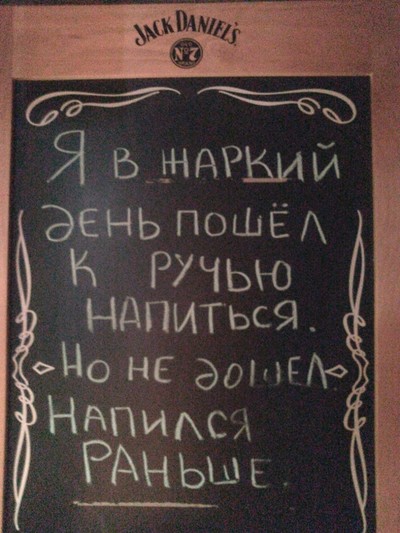 JACK DANIEL'S
OLD
No. 7
BRAND
Я В ЖАРКИЙ
ДЕНЬ ПОШЁЛ
К РУЧЬЮ
НАПИТЬСЯ.
НО НЕ ДОШЕЛ.
НАПИЛСЯ
РАНЬШЕ.